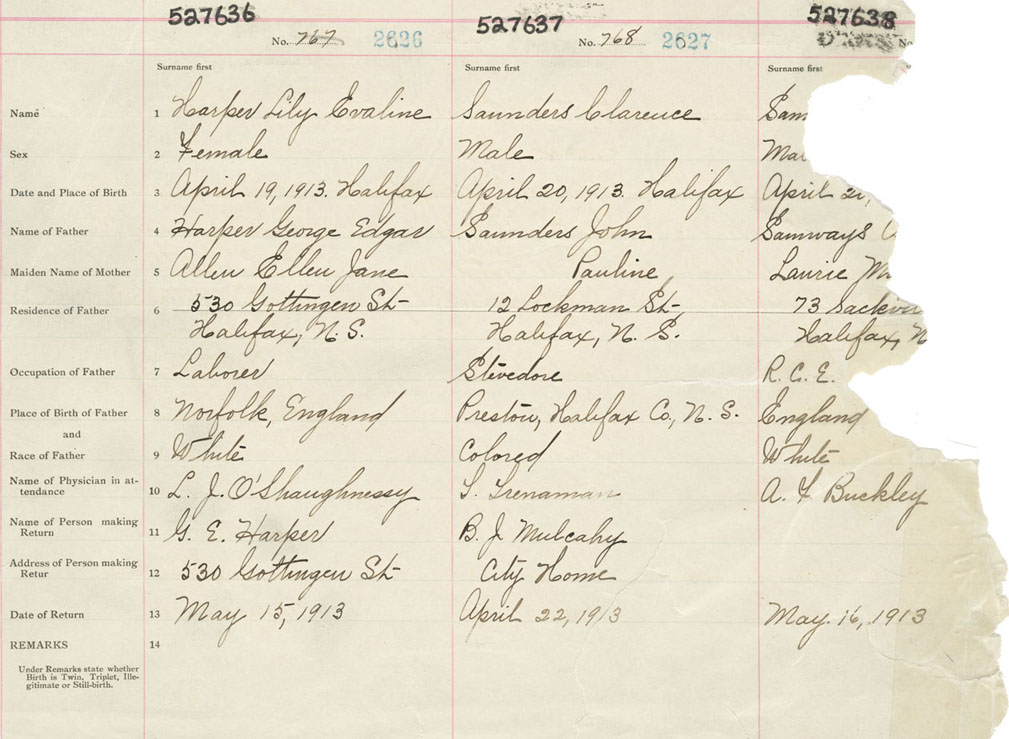 527636 527637 527638
No. 767 2626 No. 768 2627 No
Surname first Surname first Surname first
Name 1 Harper Lily Evaline Saunders Clarence Sam
Sex 2 Female Male Ma
Date and Place of Birth 3 April 19, 1913. Halifax April 20, 1913 Halifax April 21,
Name of Father 4 Harper George Edgar Saunders John Samways
Maiden Name of Mother 5 Allen Ellen Jane Pauline Laurie M
Residence of Father 6 530 Gottingen St 12 Lockman St 73 Sackvi
Halifax, N. S. Halifax, N. S. Halifax, N
Occupation of Father 7 Laborer Stevedore R. C. E.
Place of Birth of Father 8 Norfolk, England Preston, Halifax Co., N. S. England
and
Race of Father 9 White Colored White
Name of Physician in at-
tendance 10 L. J. O'Shaughnessy T. Trenaman A. F Buckley
Name of Person making
Return 11 G. E. Harper B. J. Mulcahy
Address of Person making
Retur 12 530 Gottingen St City Home
Date of Return 13 May 15, 1913 April 22, 1913 May. 16, 1913
REMARKS 14
Under Remarks state whether
Birth is Twin, Triplet, Ille-
gitimate or Still-birth.